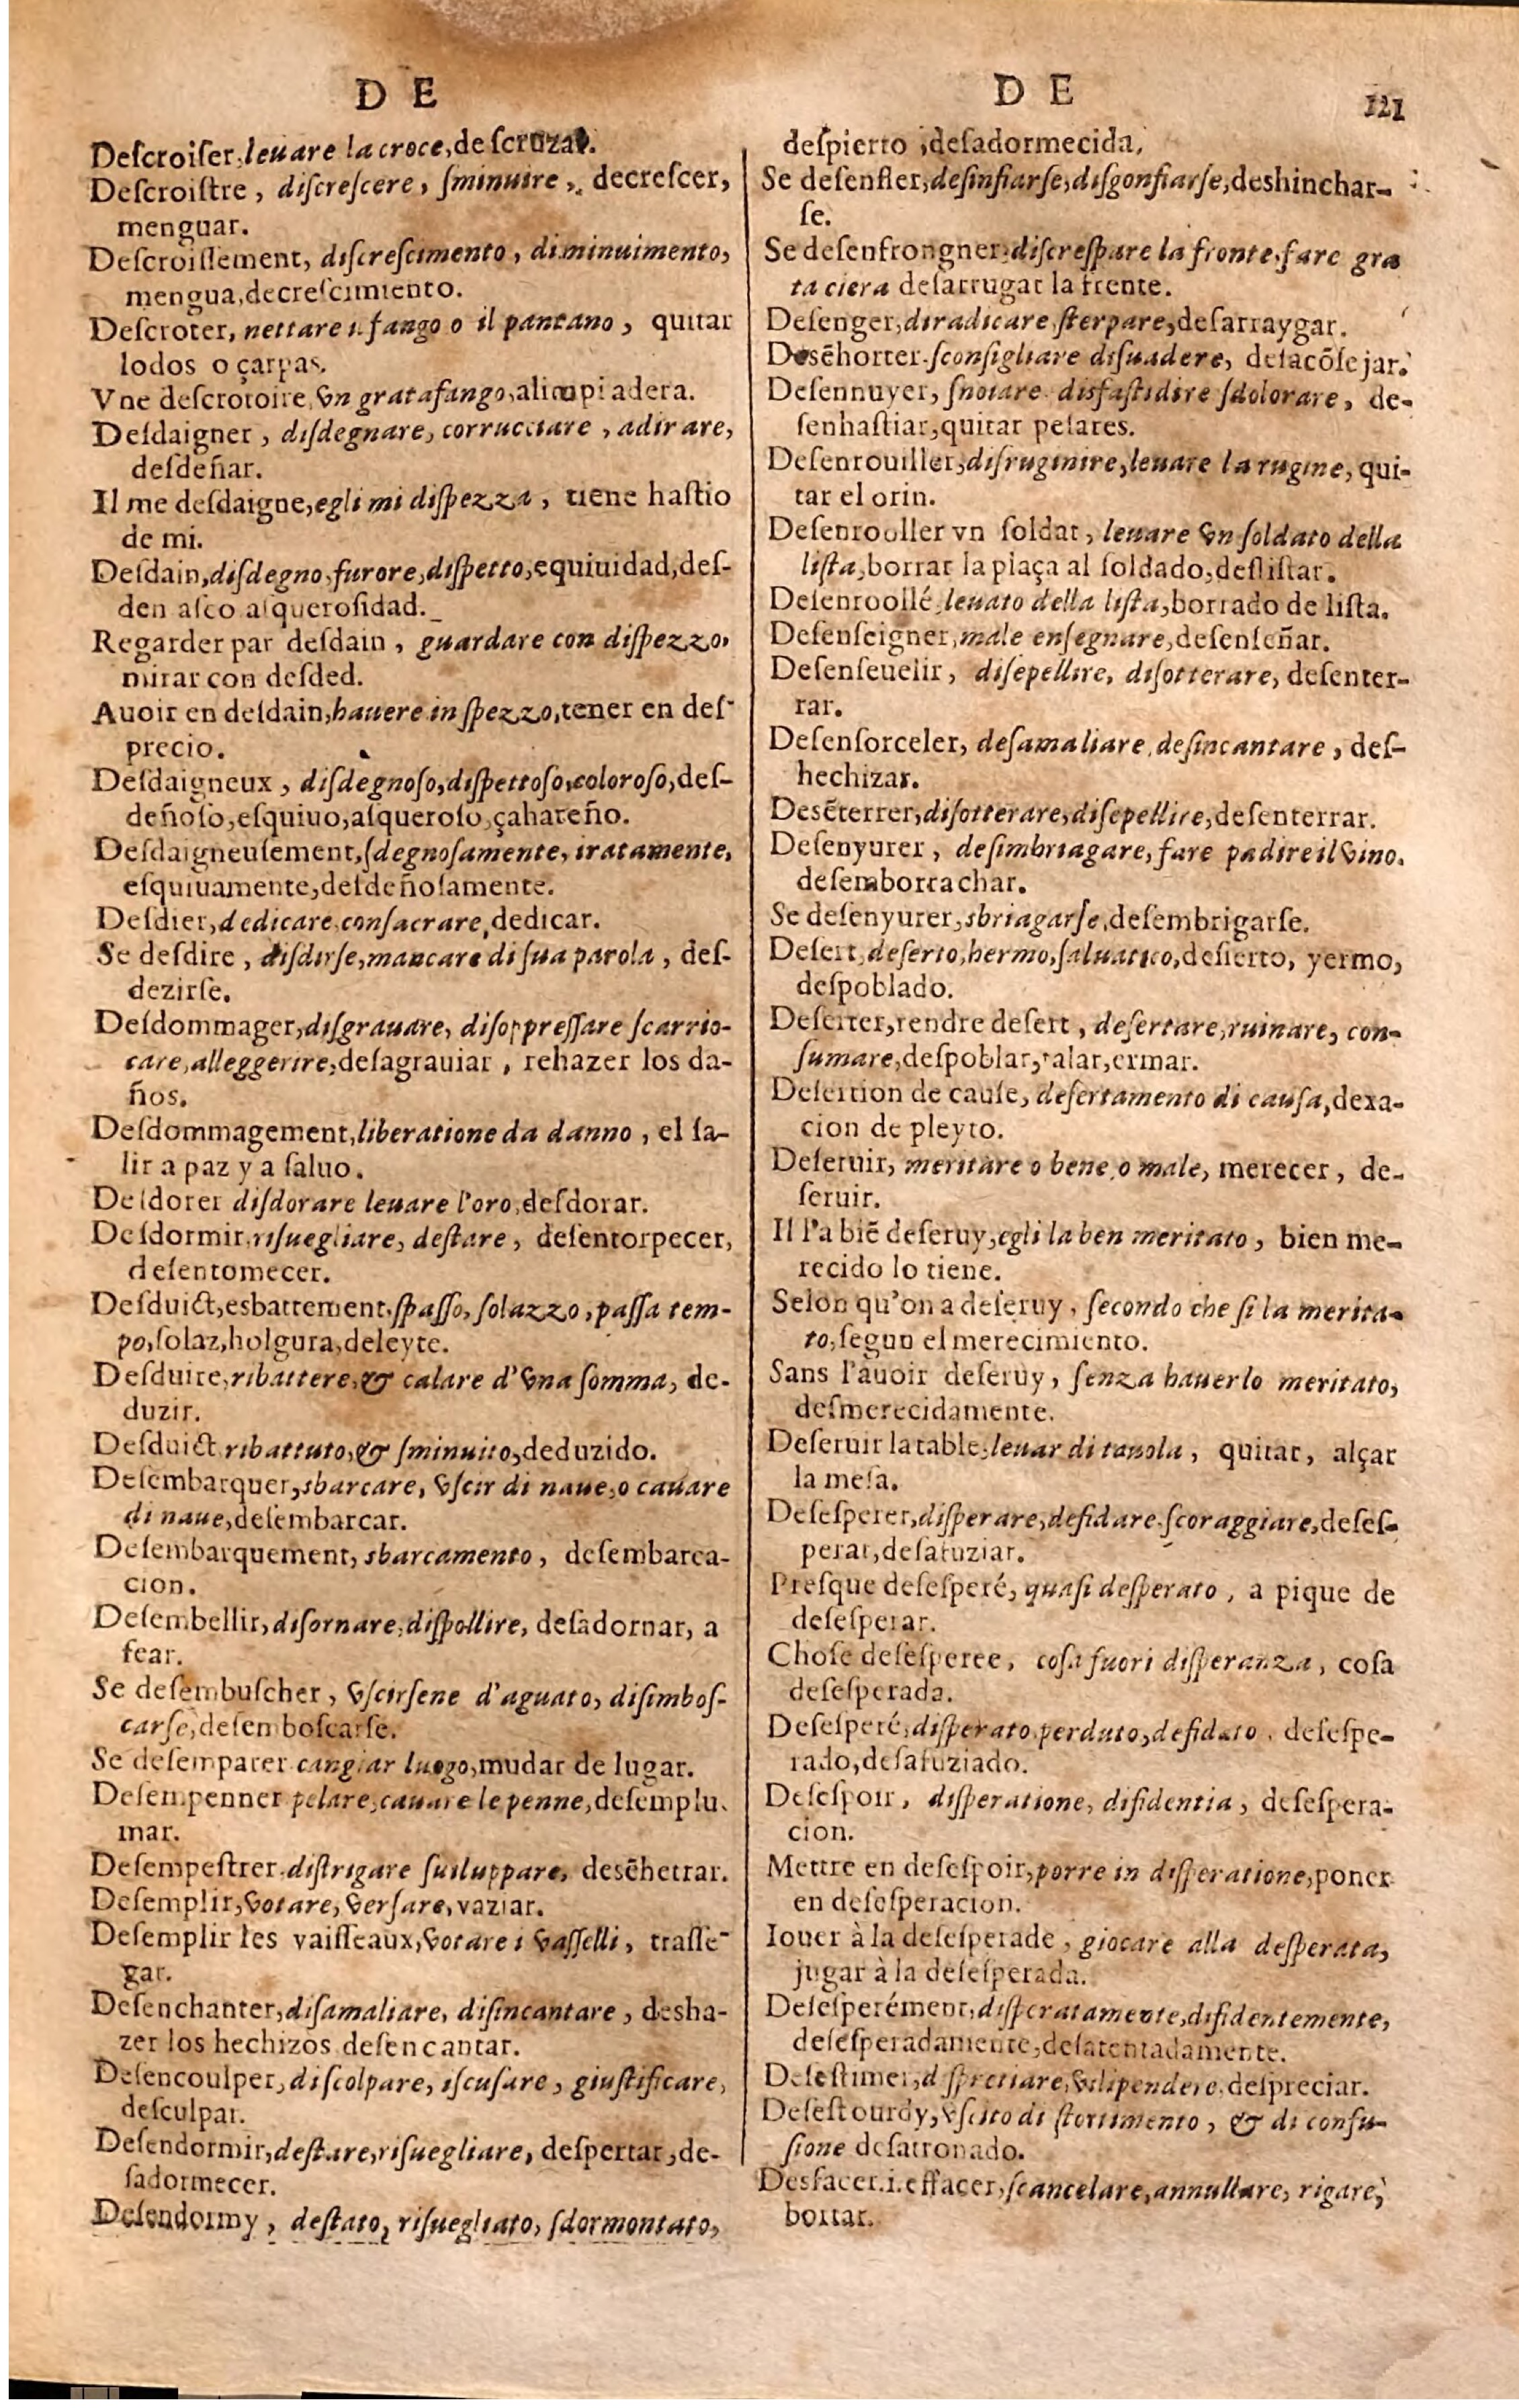 D E
Deſcroiſer, leuare la croce, deſcruzar.
Deſcroiſtre, diſcreſcere, ſminuire, decreſcer,
menguar.
Deſcroiſſement, diſcreſcimento, diminuimento,
mengua, decreſcimiento.
Deſcroter, nettare il fango o il pantano, quitar
lodos o çarpas.
Vne deſcrotoire, vn gratafango, alimpiadera.
Deſdaigner, diſdegnare, corrucciare, adirare,
deſdeñar.
Il me deſdaigne, egli mi diſpezza, tiene haſtio
de mi.
Deſdain, diſdegno, furore, diſpetto, equiuidad, deſ-
den aſco aſqueroſidad.
Regarder par deſdain, guardare con diſpezzo,
mirar con deſded.
Auoir en deſdain, hauere in ſpezzo, tener en deſ-
precio.
Deſdaigneux, diſdegnoſo, diſpettoſo, coloroſo, deſ-
deñoſo, eſquiuo, aſqueroſo, çahareño.
Deſdaigneuſement, ſdegnoſamente, iratamente,
eſquiuamente, deſdeñoſamente.
Deſdier, dedicare, conſacrare, dedicar.
Se deſdire, diſdirſe, mancare di ſua parola, deſ-
dezirſe.
Deſdommager, diſgrauare, diſoppreſſare ſcarrio-
care, alleggerire, deſagrauiar, rehazer los da-
ños.
Deſdommagement, liberatione da danno, el ſa-
lir a paz y a ſaluo.
Deſdorer diſdorare leuare l'oro, deſdorar.
Deſdormir, riſuegliare, deſtare, deſentorpecer,
deſentomecer.
Deſduict, esbattement, ſpaſſo, ſolazzo, paſſa tem-
po, ſolaz, holgura, deleyte.
Deſduire, ribattere, & calare d'vna ſomma, de-
duzir.
Deſduict ribattuto, & ſminuito, deduzido.
Deſembarquer, sbarcare, vſcir di naue, o cauare
di naue, deſembarcar.
Deſembarquement, sbarcamento, deſembarca-
cion.
Deſembellir, diſornare, diſpollire, deſadornar, a
fear.
Se deſembuſcher, vſcirſene d'aguato, diſimboſ-
carſe, deſemboſcarſe.
Se deſemparer cangiar luogo, mudar de lugar.
Deſempenner pelare, cauare le penne, deſemplu-
mar.
Deſempeſtrer, diſtrigare ſuiluppare, deſēhetrar.
Deſemplir, votare, verſare, vaziar.
Deſemplir les vaiſſeaux, votare i vaſſelli, traſſe-
gar.
Deſenchanter, diſamaliare, diſincantare, desha-
zer los hechizos deſencantar.
Deſencoulper, diſcolpare, iſcuſare, giuſtificare,
deſculpar.
Deſendormir, deſtare, riſuegliare, deſpertar, de-
ſadormecer.
Deſendormy, deſtato, riſuegliato, ſdormontato,
D E
121
deſpierto, deſadormecida.
Se deſenfler, deſinfiarſe, diſgonfiarſe, deshinchar-
ſe.
Se deſenfrongner, diſcreſpare la fronte, fare gra
ta ciera deſarrugar la frente.
Deſenger, diradicare, ſterpare, deſarraygar.
Deſēhorter, ſconſigliare diſuadere, deſacōſejar.
Deſennuyer, ſnoiare diſfaſtidire ſdolorare, de-
ſenhaſtiar, quitar peſares.
Deſenrouiller, diſruginire, leuare la rugine, qui-
tar el orin.
Deſenrooller vn ſoldat, leuare vn ſoldato della
liſta, borrar la plaça al ſoldado, deſliſtar.
Deſenroollé leuato della liſta, borrado de liſta.
Deſenſeigner, male enſegnare, deſenſeñar.
Deſenſeuelir, diſepellire, diſotterare, deſenter-
rar.
Deſenſorceler, deſamaliare, deſincantare, deſ-
hechizar.
Deſēterrer, diſotterare, diſepellire, deſenterrar.
Deſenyurer, deſimbriagare, fare padire il vino.
deſemborrachar.
Se deſenyurer, sbriagarſe, deſembrigarſe.
Deſert, deſerto, hermo, ſaluatico, deſierto, yermo,
deſpoblado.
Deſerter, rendre deſert, deſertare, ruinare, con-
ſumare, deſpoblar, talar, ermar.
Deſertion de cauſe, deſertamento di cauſa, dexa-
cion de pleyto.
Deſeruir, meritare o bene, o male, merecer, de-
ſeruir.
Il l'a biē deſeruy, egli la ben meritato, bien me-
recido lo tiene.
Selon qu'on a deſeruy, ſecondo che ſi la merita-
to, ſegun el merecimiento.
Sans l'auoir deſeruy, ſenza hauerlo meritato,
deſmerecidamente.
Deſeruir la table, leuar di tauola, quitar, alçar
la meſa.
Deſeſperer, diſperare, defidare ſcoraggiare, deſeſ-
perar, deſafuziar.
Preſque deſeſperé, quaſi deſperato, a pique de
deſeſperar.
Choſe deſeſperee, coſa fuori diſperanza, coſa
deſeſperada.
Deſeſperé, diſperato, perduto, defidato, deſeſpe-
rado, deſafuziado.
Deſeſpoir, diſperatione, difidentia, deſeſpera-
cion.
Mettre en deſeſpoir, porre in diſperatione, poner
en deſeſperacion.
Iouer à la deſeſperade, giocare alla deſperata,
jugar à la deſeſperada.
Deſeſperément, diſperatamente, difidentemente,
deſeſperadamente, deſatentadamente.
Deſeſtimer, diſpretiare, vilipendere, deſpreciar.
Deſeſtourdy, vſcito di ſtortimento, & di confu-
ſione deſatronado.
Desfacer. i. effacer, ſcancelare, annullare, rigare,
borrar.